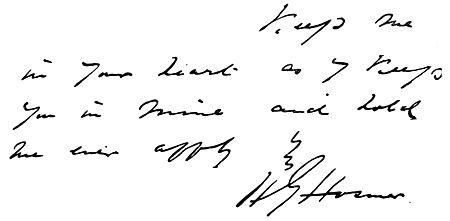 Keep me
in your heart as I keep
you in mine and hold
me ever
HGHosmer